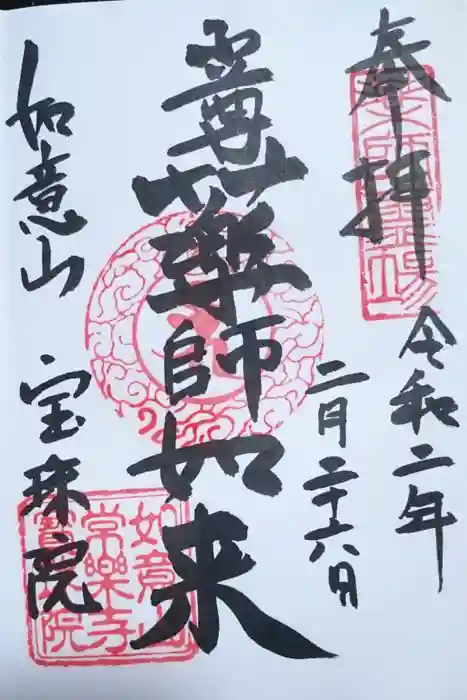 奉拝
令和二年
二月二十六日
尊薬師如来
如意山 宝珠院
如意山
常樂寺
寳珠院